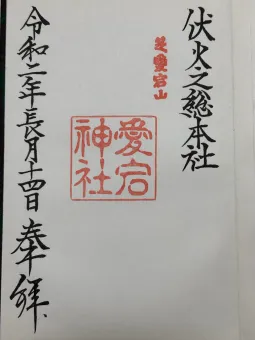 伏火之総本社
芝愛宕山
愛宕
神社
令和二年長月十四日奉拝